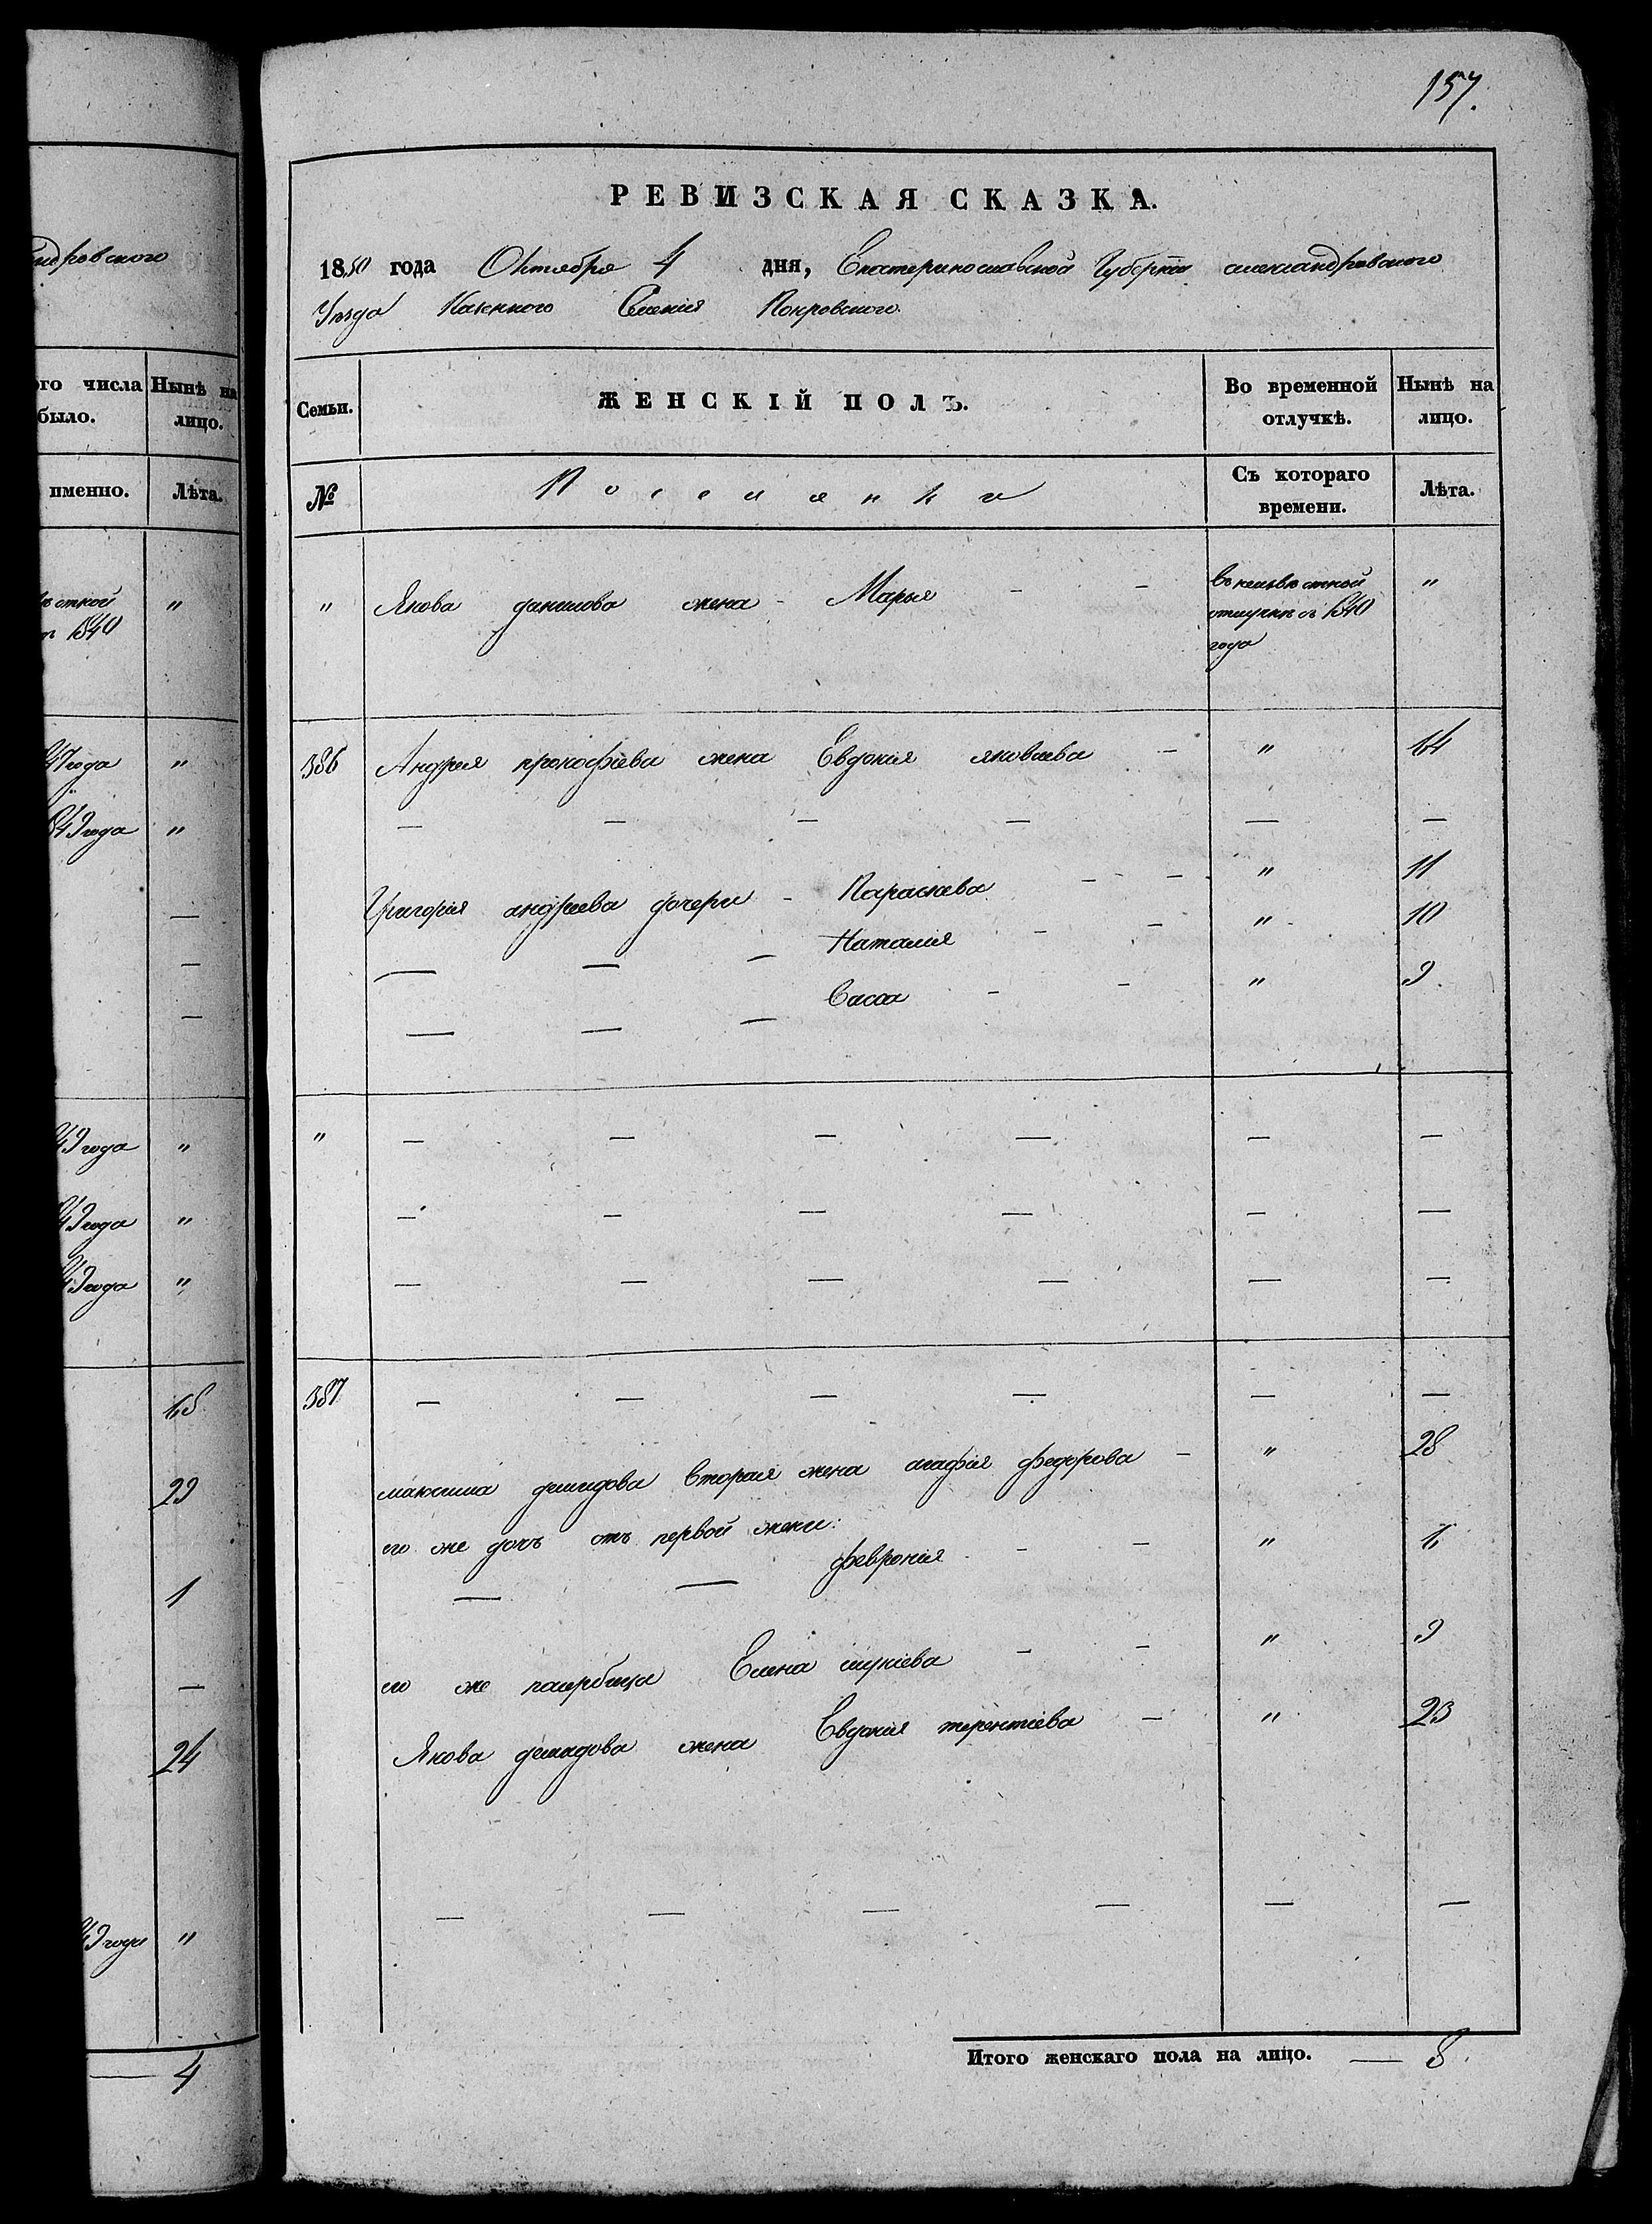 157.
РЕВИЗСКАЯ СКАЗКА.
1850 года Октября 4 дня, Екатеринославской Губерніи александровского
Уезда Казенного Селенія Покровского
Семьи.
ЖЕНСКІЙ ПОЛЪ.
Во временной отлучкѣ.
Нынѣ на лицо.
№
Поселянки
Съ котораго времени.
Лѣта.
" Якова данилова жена - Марья - - въ неизвѣстной "
отлучке съ 1840
года
386 Андрея прокофіева жена Евдокия яковлева - "
— — — — — —
Григория андреева дочери - Параскева - - " 11
— — — Наталия - - " 10
— — — Васса - - " 9
" — — — — — —
— — — — — —
— — — — — —
387 — — — — — —
максима демидова вторая жена агафия федорова - " 28
его же дочь отъ первой жены:
— — феврония - - "
его же падчерица Елена - - " 9
Якова демидова жена Евдокия терентиева - " 23
— — — — — —
Итого женскаго пола на лицо. — 8.
ндровского
ого числа было.
Нынѣ на лицо.
именно.
Лѣта.
ѣстной "
1840
47 года "
849 года "
—
—
—
49 года "
49 года "
49 года "
29
1
—
24
49 года "
— 4